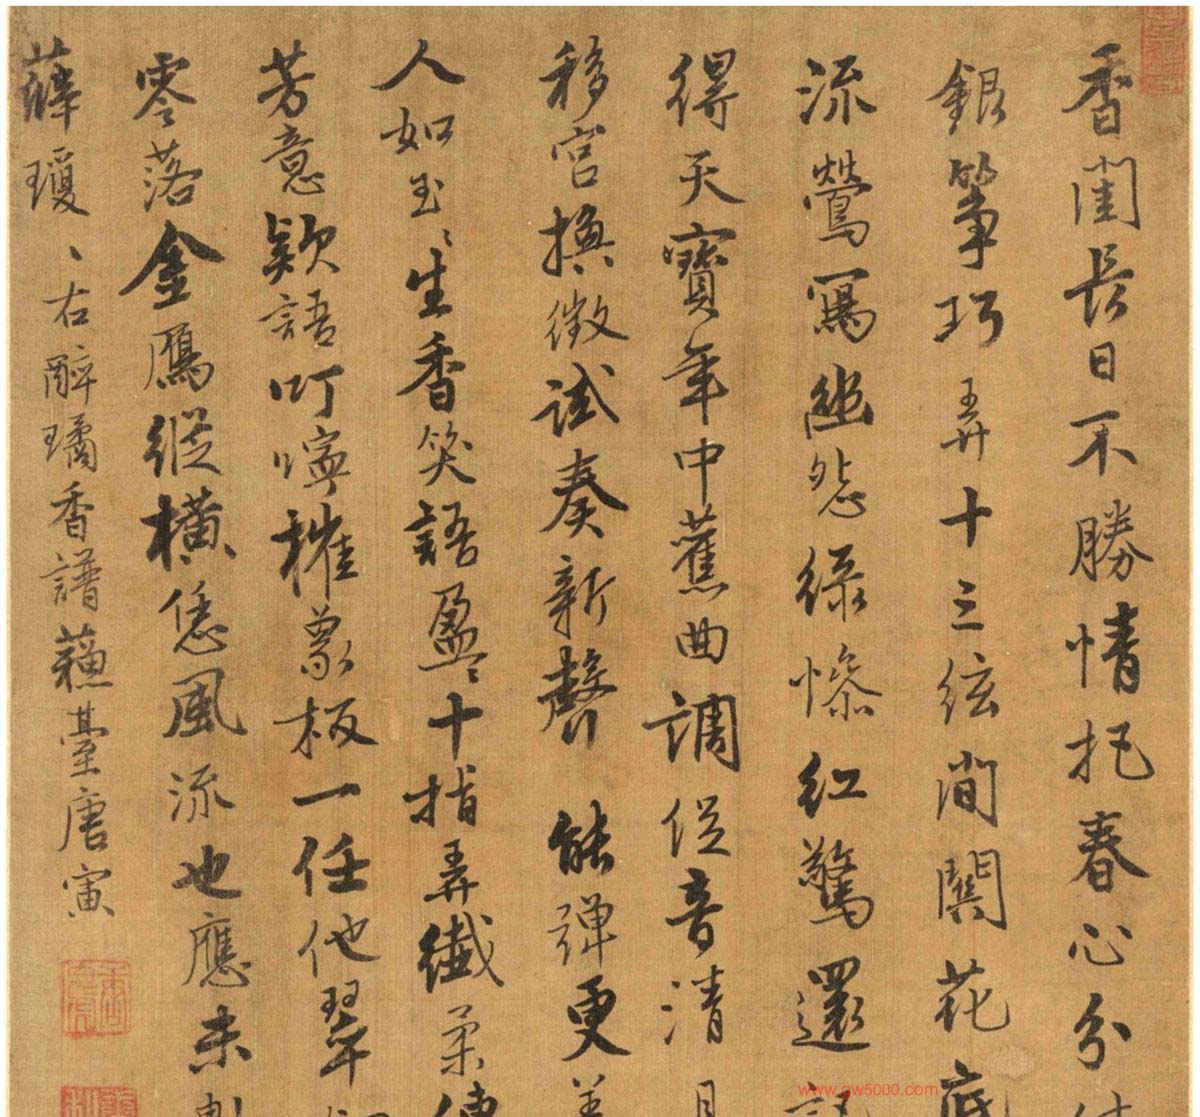 香閨長日不勝情把春心分付
銀箏巧弄十三絃間關花底
流鶯罵幽愁綠慘紅驚還訴
得天寶年中舊曲調從音清
移宮換徵試奏新聲能彈更
人如玉〻生香笑語盈〻十指弄纖柔
芳意欵語叮嚀摧象板一任他翠
零落金鴈縱橫恁風流也應未
薛瓊〻右醉瓊香譜蘇臺唐寅
www.aw5000.com